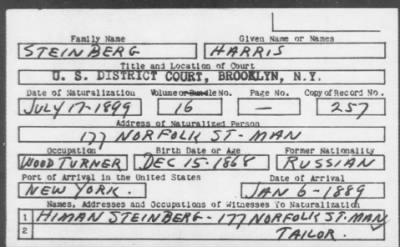 Family Name Given Name or Names
STEINBERG HARRIS
Title and Location of Court
U. S. DISTRICT COURT, BROOKLYN, N.Y.
Date of Naturalization Volume or Bundle No. Page No. Copy of Record No.
JULY 17-1899 16 — 257
Address of Naturalized Person
177 NORFOLK ST-MAN
Occupation Birth Date or Age Former Nationality
WOOD TURNER DEC 15-1868 RUSSIAN
Port of Arrival in the United States Date of Arrival
NEW YORK. JAN 6-1889
Names, Addresses and Occupations of Witnesses To Naturalization
1 HIMAN STEINBERG-177 NORFOLK ST. MAN
2 TAILOR.